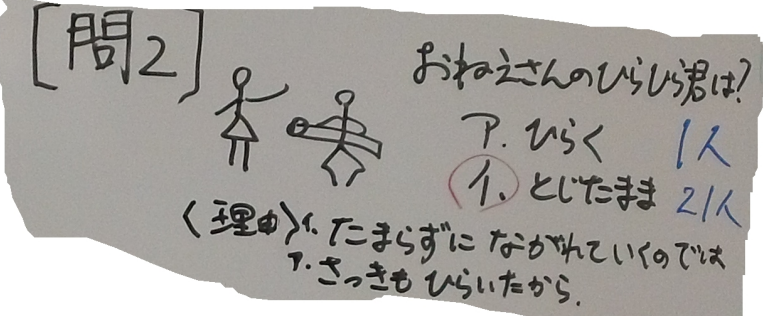 [問2]
おねえさんのひらひら君は?
ア. ひらく 1人
イ. とじたまま 21人
〈理由〉イ. たまらずに ながれていくのでは
ア. さっきも ひらいたから.